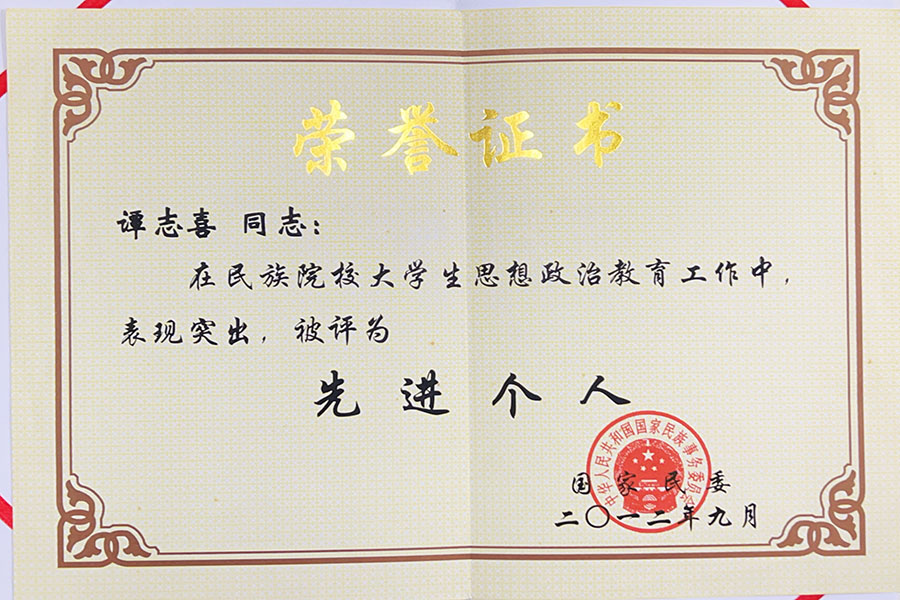 荣誉证书
谭志喜 同志：
在民族院校大学生思想政治教育工作中，
表现突出，被评为
先进个人
中华人民共和国国家民族事务委员会
国家民委
二〇一二年九月